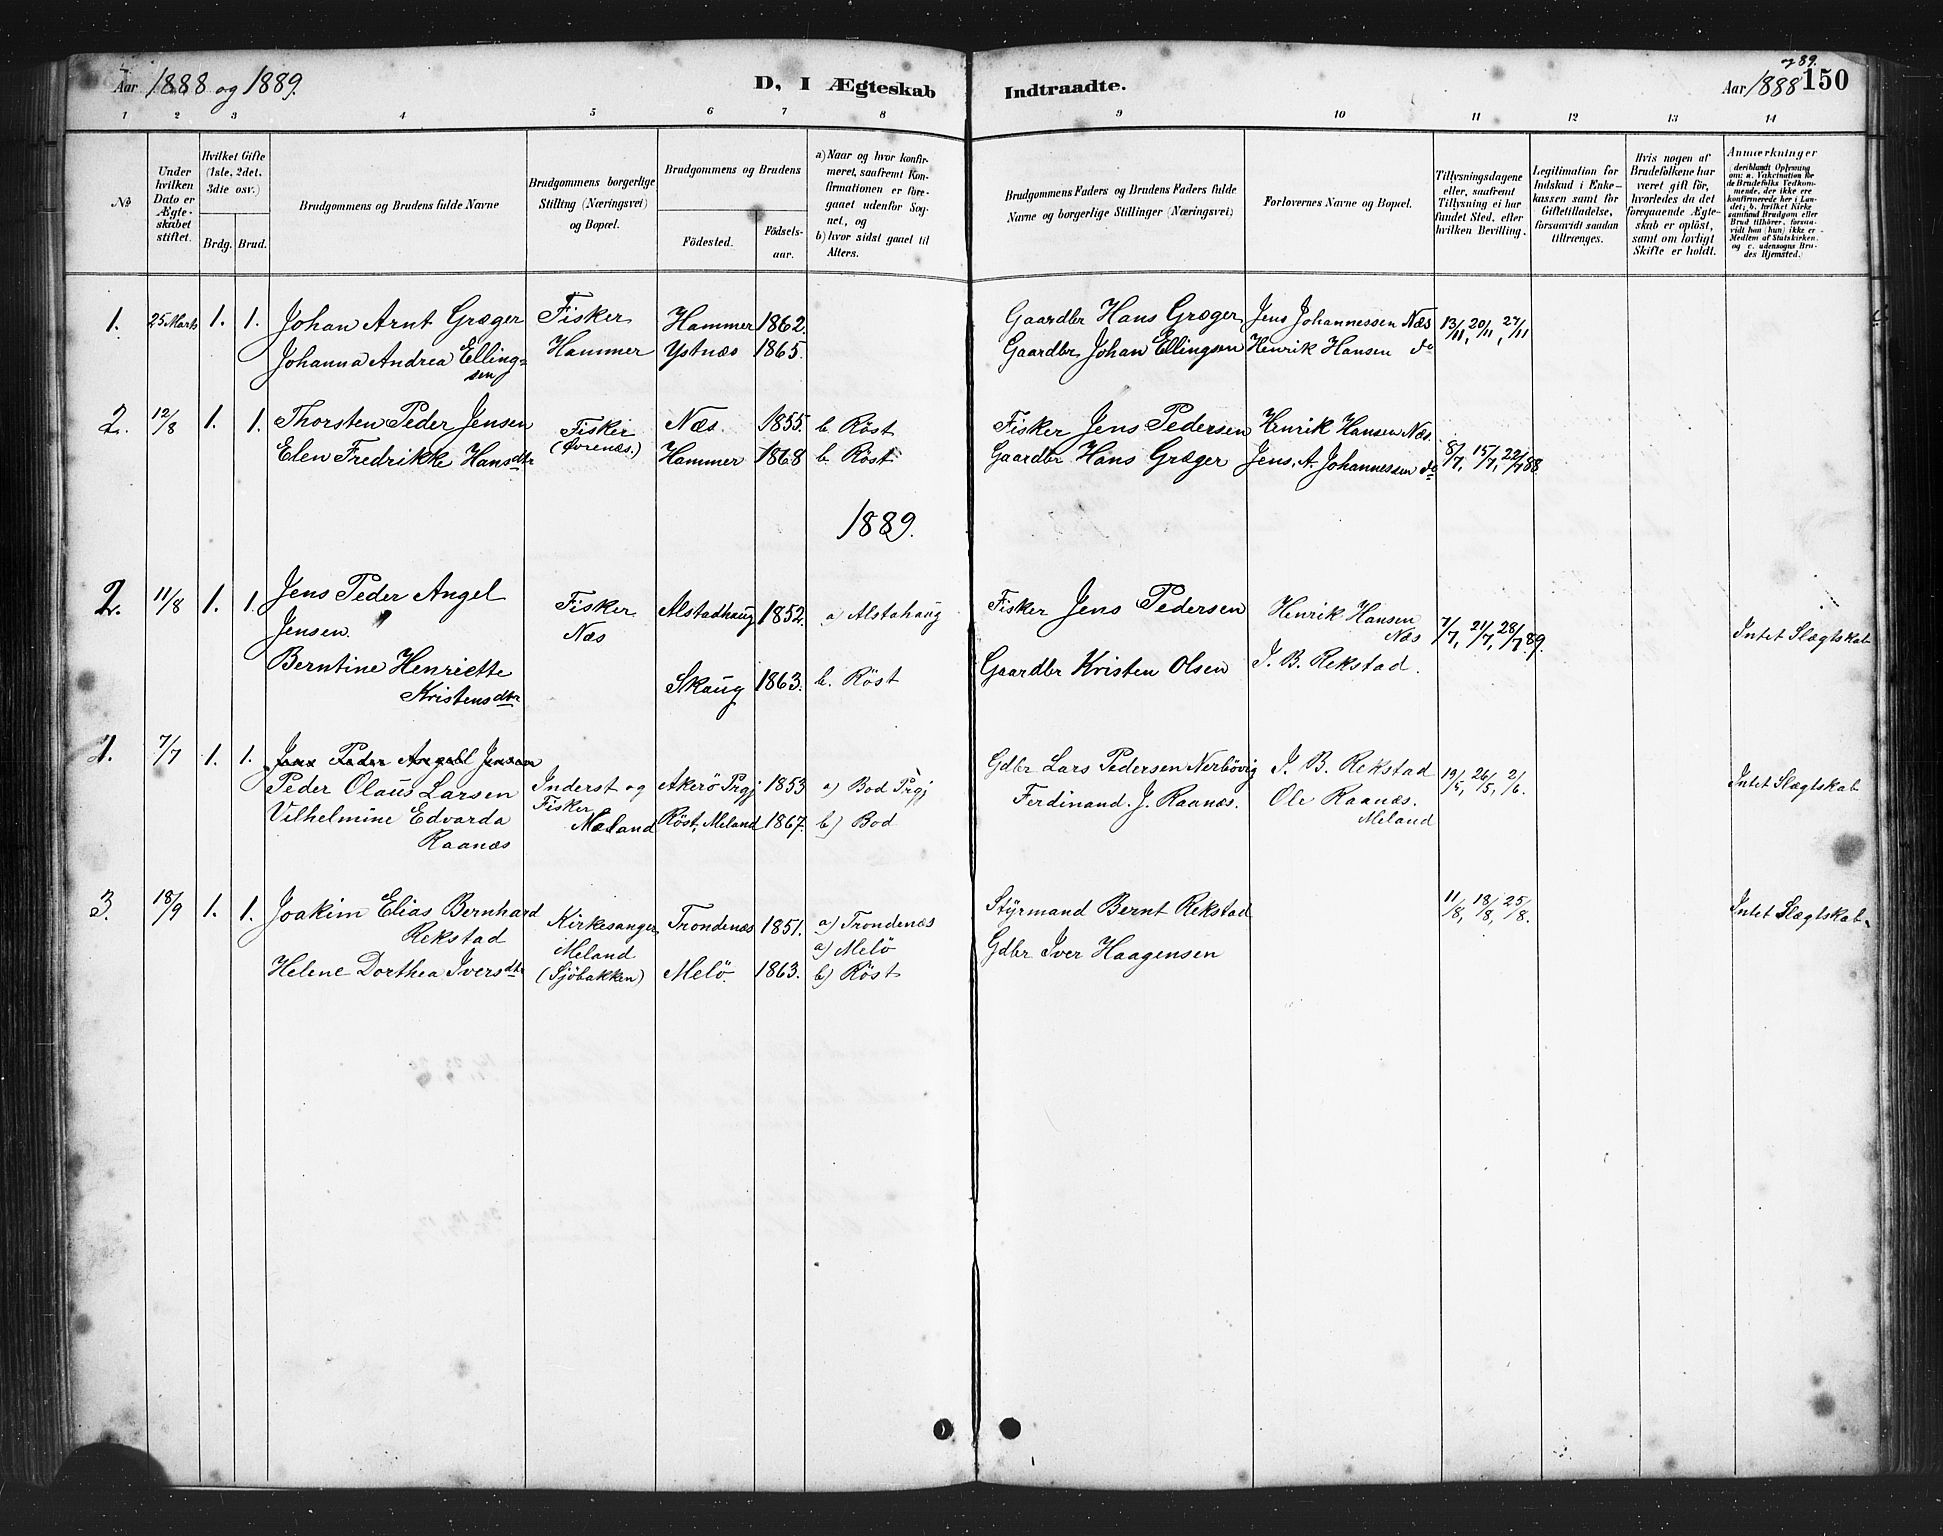 Aar 1888 og 1889.
D, I Ægteskab
Indtraadte.
og 89.
Aar 1888 150
1 2 3 4 5 6 7 8 9 10 11 12 13 14
№
Under hvilken Dato er Ægteskabet stiftet.
Hvilket Gifte (1ste, 2det, 3die osv.)
Brdg. Brud.
Brudgommens og Brudens fulde Navne
Brudgommens borgerlige Stilling (Næringsvei) og Bopæl.
Brudgommens og Brudens
Fødested. Fødselsaar.
a) Naar og hvor konfirmeret, saafremt Konfirmationen er foregaaet udenfor Sognet, og
b) hvor sidst gaaet til Alters.
Brudgommens Faders og Brudens Faders fulde Navne og borgerlige Stillinger (Næringsvei)
Forlovernes Navne og Bopæl.
Tillysningsdagene eller, saafremt Tillysning ei har fundet Sted, efter hvilken Bevilling.
Legitimation for Indskud i Enkekassen eller for Giftetilladelse, forsaavidt saadan tiltrænges.
Hvis nogen af Brudefolkene har været gift før, hvorledes da det foregaaende Ægteskab er opløst, samt om lovligt Skifte er holdt.
Anmærkninger deriblandt Oplysning om: a. Vakcination for de Brudefolks Vedkommende, der ikke ere konfirmerede her i Landet; b. hvilket Kirkesamfund Brudgom eller Brud tilhører, forsaavidt han (hun) ikke er Medlem af Statskirken, og c. udensogns Brudes Hjemsted.)
1. 25 Marts 1. 1. Johan Arnt Græger Fisker Hammer 1862. Gaardbr Hans Græger Jens Johannessen Næs 13/11, 20/11, 27/11
Johanna Andrea Elling= Hammer Ystnæs 1865. Gaardbr Johan Ellingsen Henrik Hansen do
sen
2. 12/8 1. 1. Thorsten Peder Jensen Fisker Næs 1855. b. Röst Fisker Jens Pedersen Henrik Hansen Næs.
Elen Fredrikke Hansdtr (Øvrenæs.) Hammer 1868 b. Röst Gaardbr Hans Græger Jens. A. Johannessen do 8/7, 15/7, 22/7 88.
1889.
2. 11/8 1. 1. Jens Peder Angel Fisker Alstadhaug 1852. a) Alstahaug Fisker Jens Pedersen Henrik Hansen 7/7, 21/7, 28/7 89. Intet Slægtskab
Jensen. Næs Næs
Berntine Henriette Skaug 1863. b. Röst Gaardbr Kristen Olsen J. B. Rekstad.
Kristensdtr
1. 7/7 1. 1. Jens Peder Angell Jensen
Peder Olaus Larsen Inderst og Akerö Prgj 1853 a) Bod Prgj Gdbr Lars Pedersen Nerbövig J. B. Rekstad 19/5, 26/5, 2/6. Intet Slægtskab
Vilhelmine Edvarda Fisker Meland Röst, Meland 1867. b) Bod Ferdinand. J. Raanæs. Ole Raanæs.
Raanæs Meland
3. 18/9 1. 1. Joakim Elias Bernhard Kirkesanger Trondenæs 1851. a) Trondenæs Styrmand Bernt Rekstad 11/8, 18/8, 25/8. Intet Slægtskab.
Rekstad Meland a) Melö
Helene Dorthea Iversdtr (Sjöbakken) Melö. 1863. b) Röst Gdbr Iver Haagensen